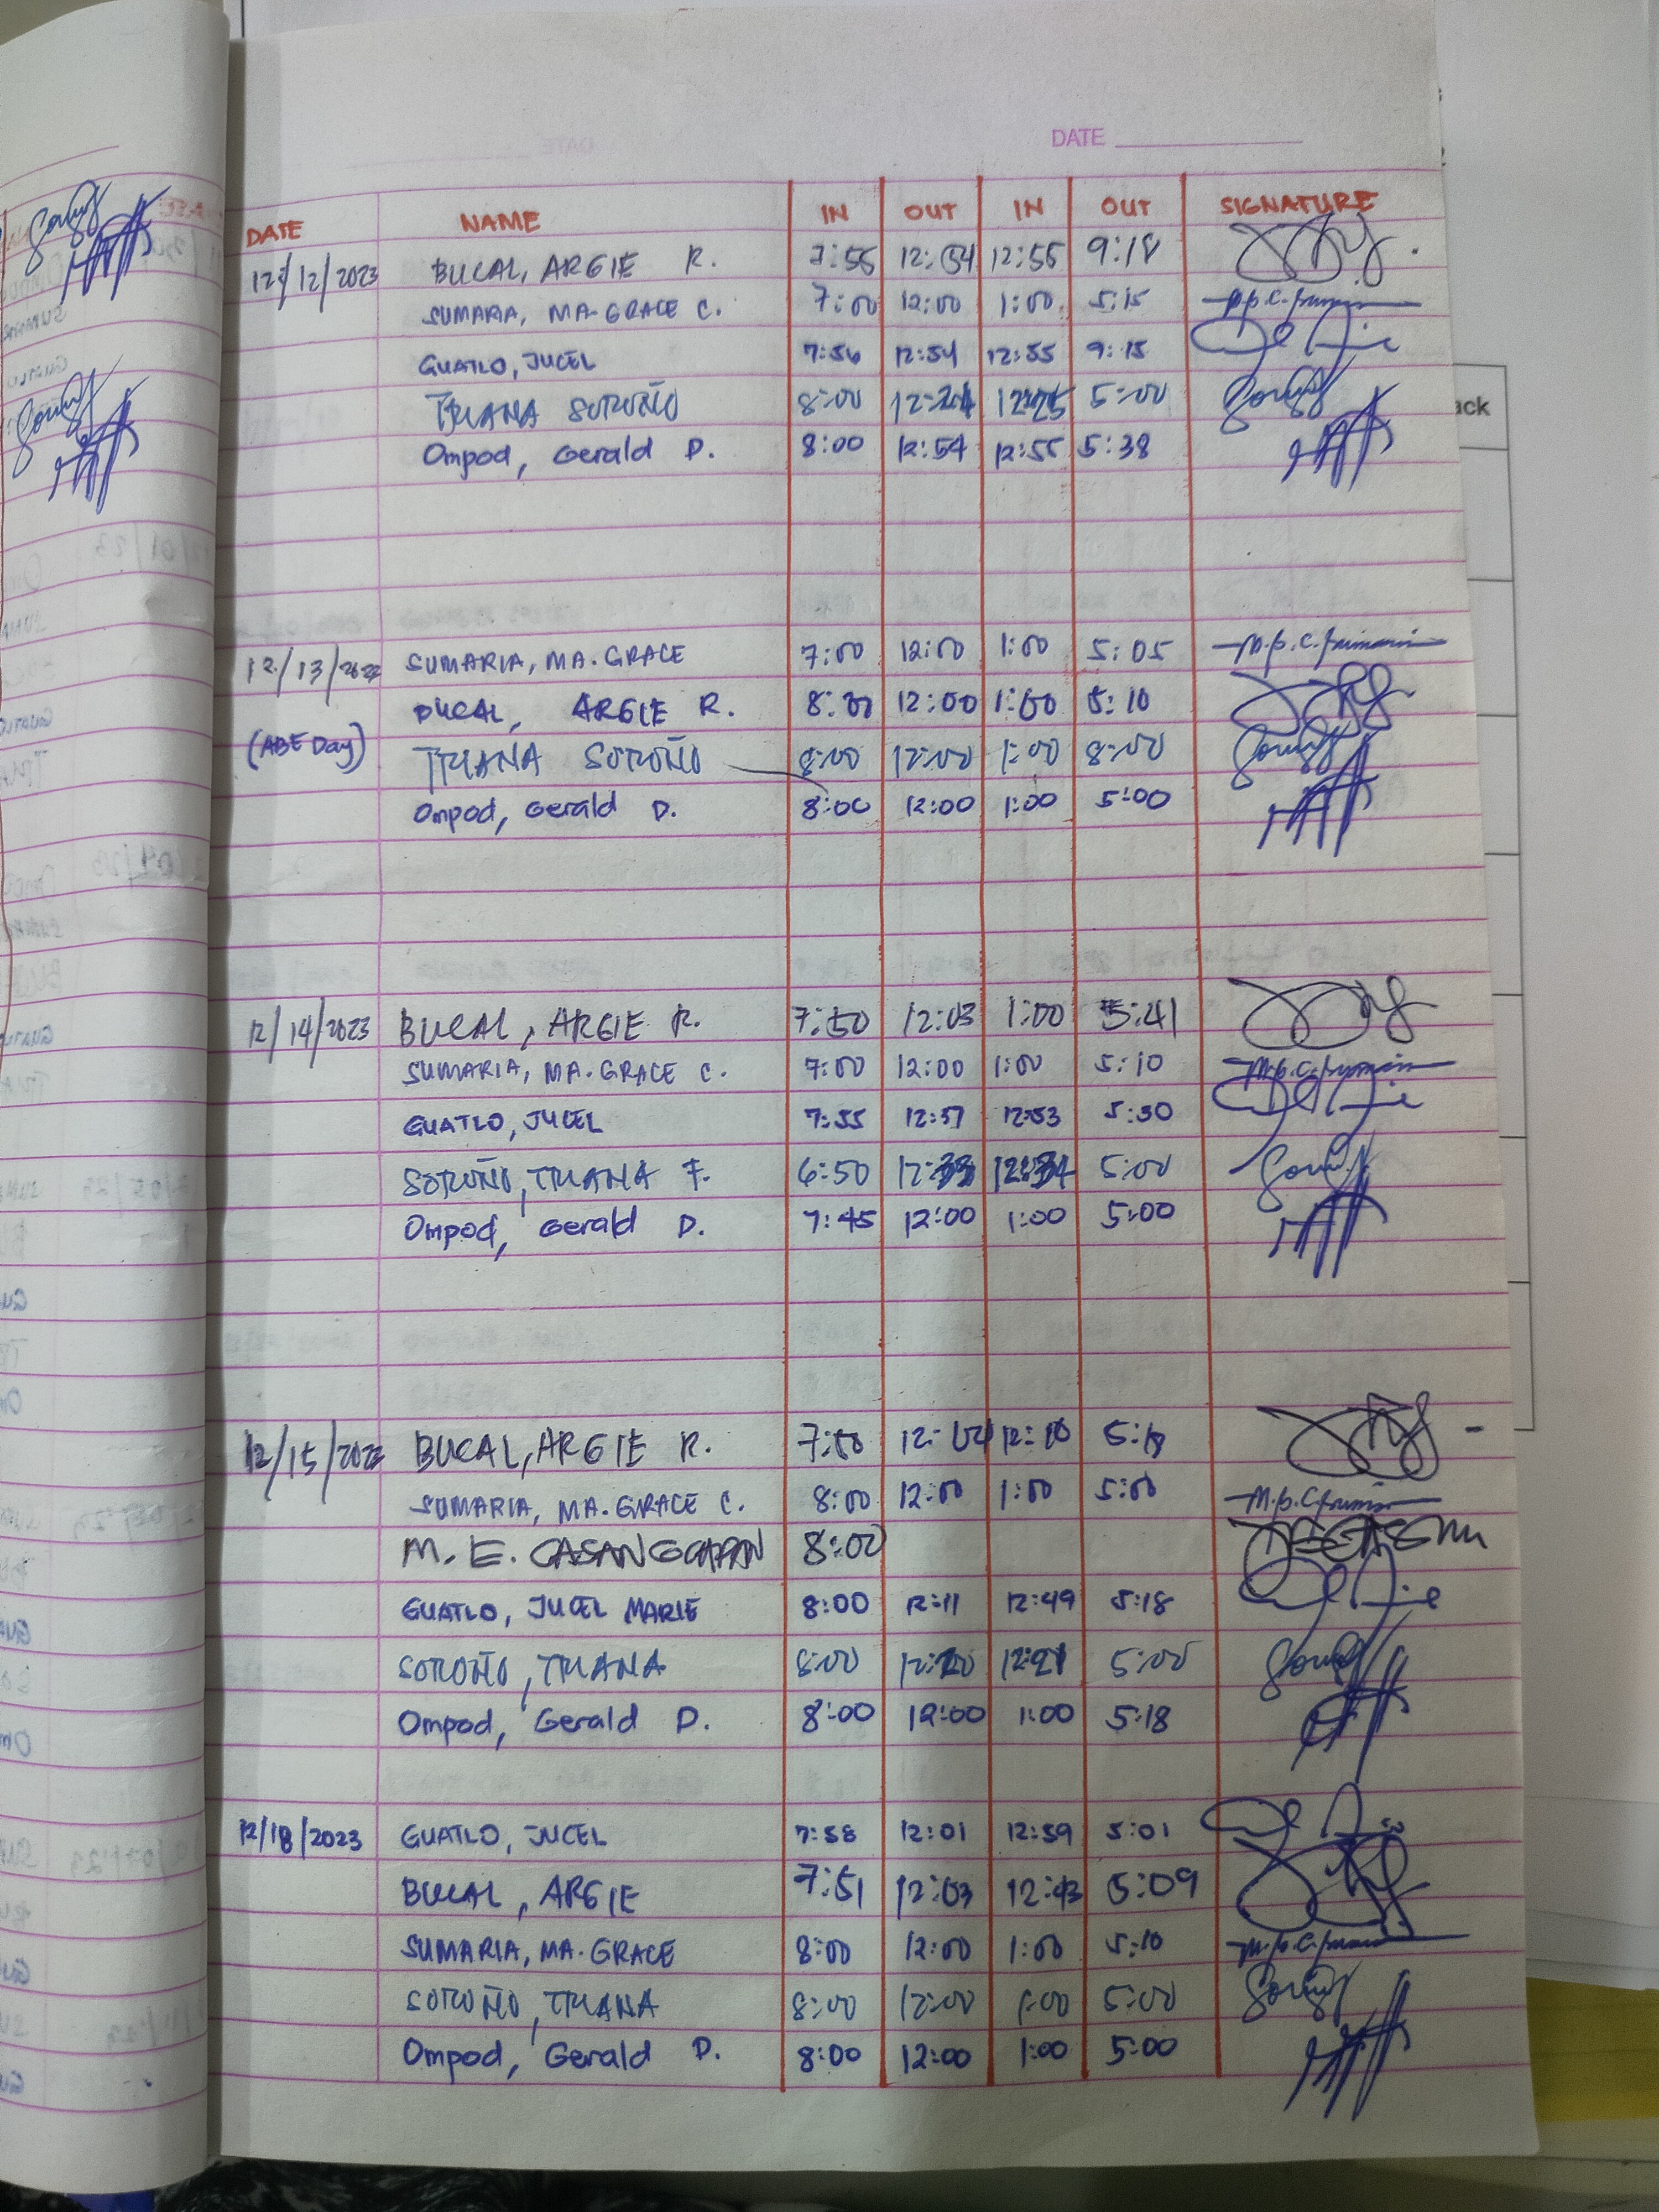 DATE
DATE NAME IN OUT IN OUT SIGNATURE
12/12/2023 BUCAL, ARGIE R. 7:55 12:54 12:55 9:18
SUMARIA, MA. GRACE C. 7:00 12:00 1:00 5:15
GUATLO, JUCEL 7:56 12:54 12:55 9:15
TRIANA SOROÑO 8:00 12:24 12:25 5:00
Ompod, Gerald D. 8:00 12:54 12:55 5:38
ack
12/13/ SUMARIA, MA. GRACE 7:00 12:00 1:00 5:05
BUCAL, ARGIE R. 12:00 1:00 5:10
(ABE Day) TRIANA SOROÑO 8:00 12:00 1:00 8:00
Ompod, Gerald D. 8:00 12:00 1:00 5:00
12/14/2023 BUCAL, ARGIE R. 7:50 12:03 1:00 5:41
SUMARIA, MA. GRACE C. 7:00 12:00 1:00 5:10
GUATLO, JUCEL 7:55 12:53 5:30
SOROÑO, TRIANA F. 6:50 12:33 12:34 5:00
Ompod, Gerald D. 7:45 12:00 1:00 5:00
12/15/2023 BUCAL, ARGIE R. 12:04 12:10
SUMARIA, MA. GRACE C. 8:00 12:00 1:00 5:00
M. E. CASANGCAPAN 8:00
GUATLO, JUCEL MARIE 8:00 12:11 12:49 5:18
SOROÑO, TRIANA 8:00 12:20 12:21 5:00
Ompod, Gerald D. 8:00 12:00 1:00 5:18
12/18/2023 GUATLO, JUCEL 7:58 12:01 12:59 5:01
BUCAL, ARGIE 7:51 12:03 12:43 5:09
SUMARIA, MA. GRACE 8:00 12:00 1:00 5:10
SOROÑO, TRIANA 8:00 12:00 1:00 5:00
Ompod, Gerald D. 8:00 12:00 1:00 5:00